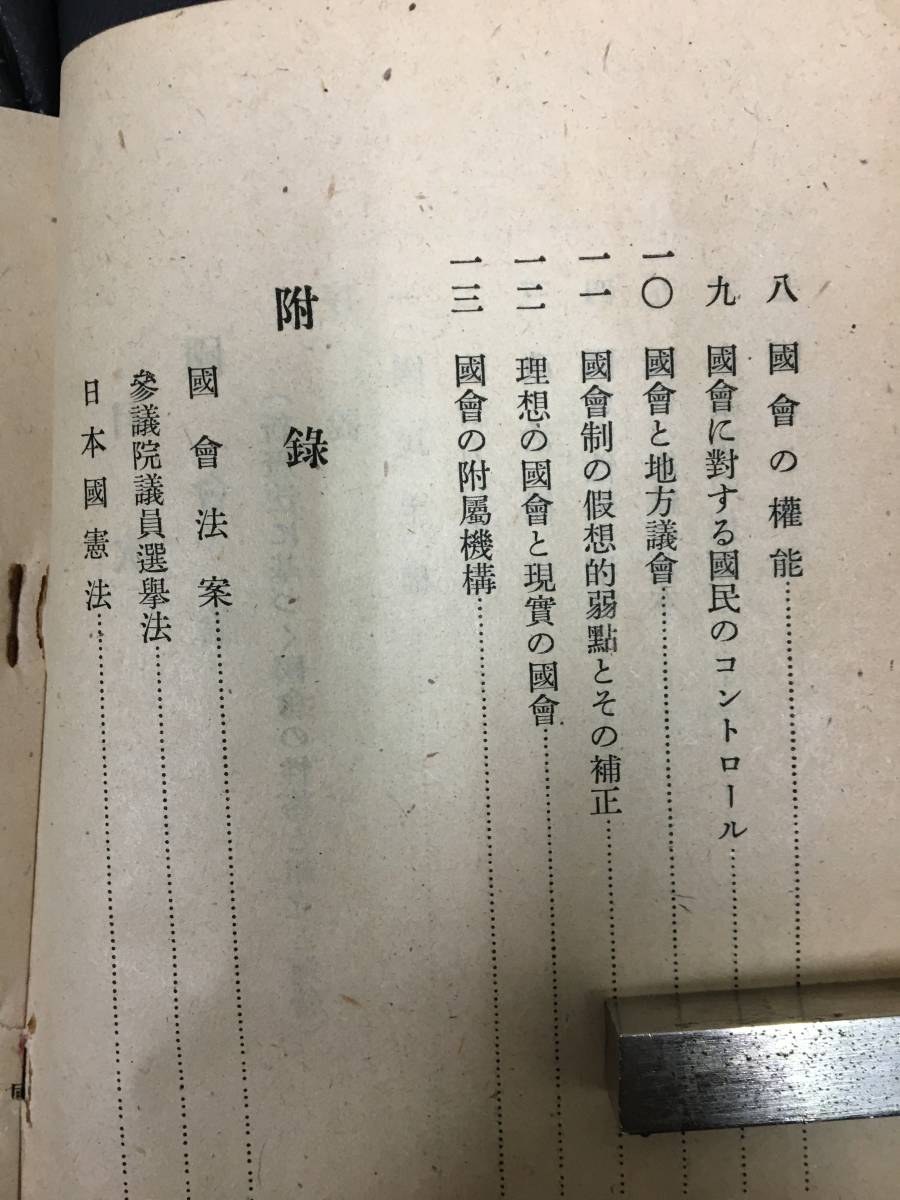 八 國會の權能
九 國會に對する國民のコントロール
一〇 國會と地方議會
一一 國會制の假想的弱點とその補正
一二 理想の國會と現實の國會
一三 國會の附屬機構
附錄
國會法案
參議院議員選擧法
日本國憲法